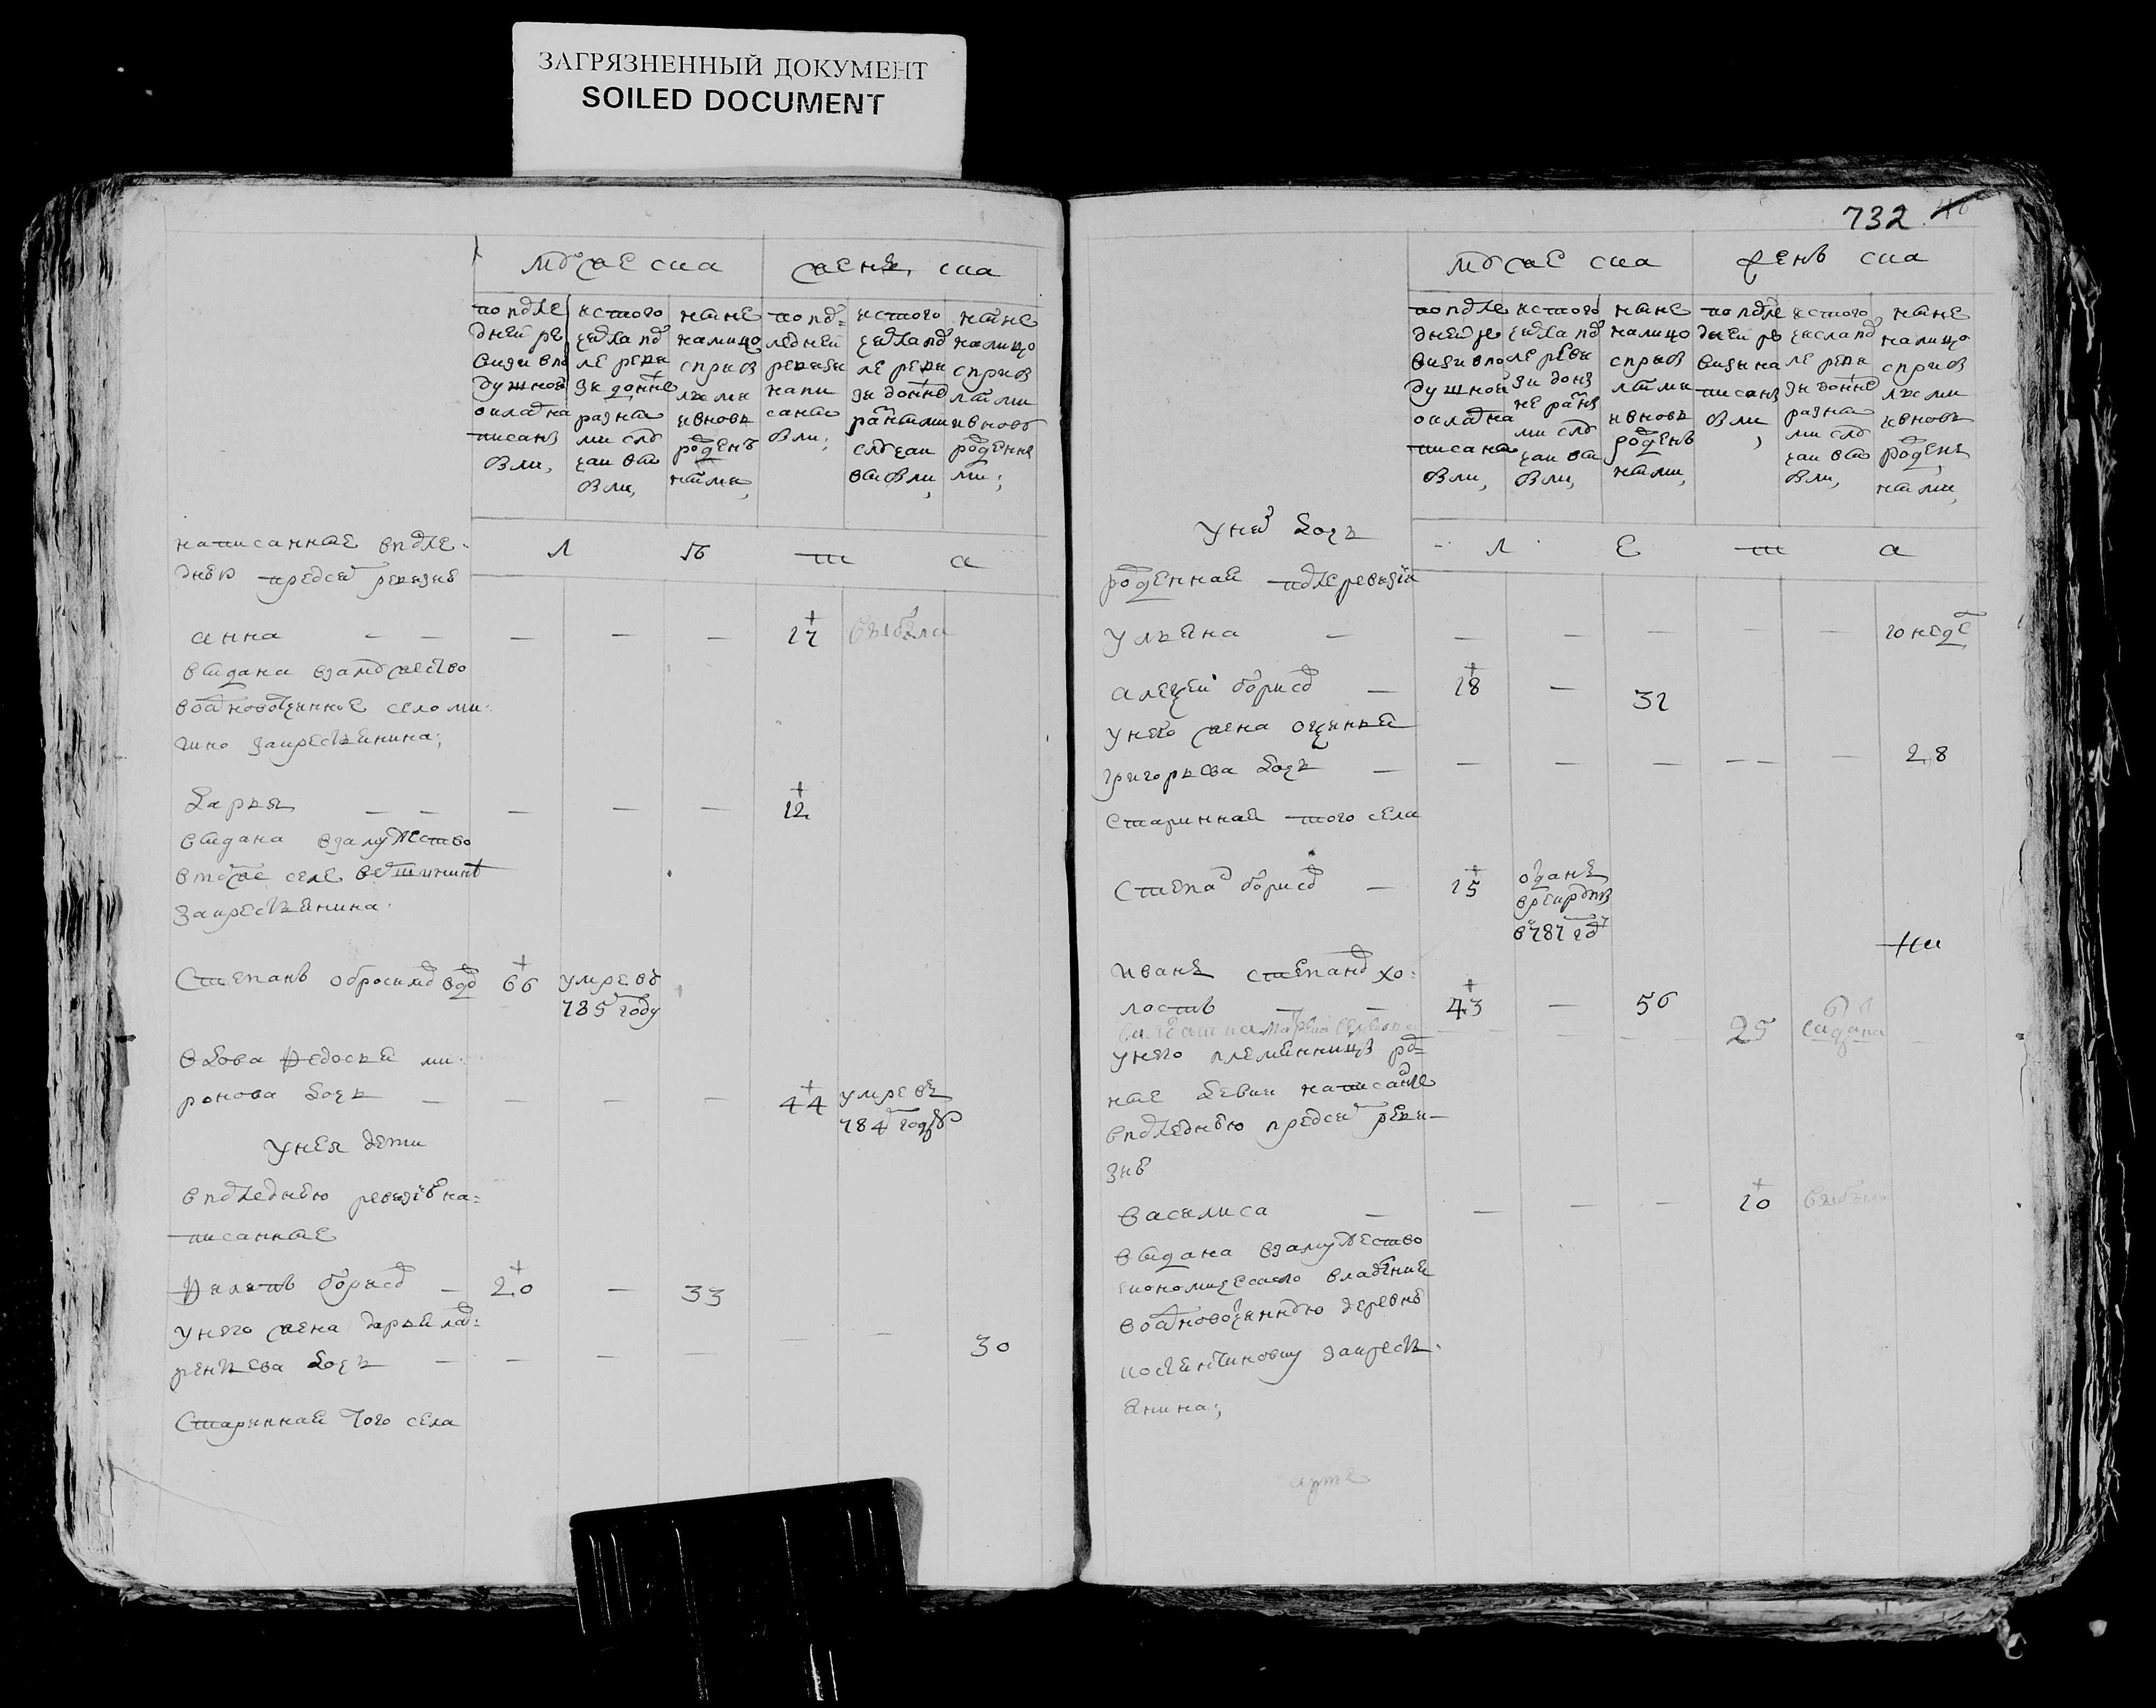 ЗАГРЯЗНЕННЫЙ ДОКУМЕНТ
SOILED DOCUMENT
мужеска женска
по после
дней ре
визи впо
душной
оклад на
писанъ
были,
ис того
числа по
ле реви
зи
разны
ми слу
чаи вы
были,
ныне
налицо
с прибы
лыми
и вновь
рожденъ
ными,
по по=
следней
ревизи
напи
саны
были;
ис того
числа по
ле реви
зи
разными
случаи
выбыли;
ныне
налицо
с прибы
лыми
и вновь
рожденны
ми;
л ѣ т а
написанные в после-
днѣй пред сей ревизиѣ
анна — — — — — 17 выбыла
выдана в замужество
село ми-
за крестьянина;
дарья — — — — — 12
выдана взамужество
в том же селе вотчины
за крестьянина.
Степанъ обросимов вдов 66 умре въ
785 году
вдова федосья ми-
ронова дочь — — — — 44 умре въ
784 году
у нея дети
в последнѣю ревизiѣ на=
писанные
филипъ борисов — 20 — 33
у него жена дарья лав=
рентьева дочь — — — — — — 30
Старинная того села
732
мужеска женъ ска
по после
дней ре
визи впо
душной
оклад на
писаны
были,
ис того
числа по
ле реви
зи
разны
ми слу
чаи вы
были,
ныне
налицо
с прибы
лыми
и вновь
рожденъ
ными,
по после
дней ре
визы на
писанъ
были,
ис того
числа по
ле реви
зи
разны
ми слу
чаи вы
были,
ныне
налицо
с прибы
лыми
и вновь
рожденъ
ными,
у них дочь
л е т а
рожденная после ревизiи
ульяна — — — — — — 10 недел
алексей борисов — 18 — 31
у него жена
григорьева дочь — — — — — — — 28
старинная того села
Степан борисов — 15 отданъ
в рекруты
в 787 год
иванъ степанов хо-
лостъ — — 43 — 56
25
у него племянницы ро=
ные девки написаные
в последнѣю пред сей реви-
зиѣ
василиса — — — — 10 выбыла
выдана взамужество
економического владѣния
деревнѣ
за кресть-
янина;